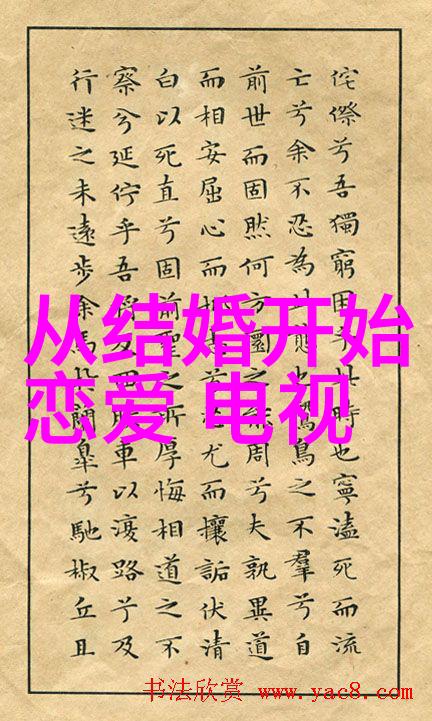 侘傺兮吾獨窮困乎此時也寧溘死而流
亡兮余不忍為此態也鷙鳥之不羣兮自
前世而固然何方圜之能周兮夫孰異道
而相安屈心而抑志兮忍尤而攘詬伏清
白以死直兮固前聖之所厚悔相道之不
察兮延佇乎吾將反回朕車以復路兮及
行迷之未遠步余馬於蘭皋兮馳椒丘且
从结婚开始
恋爱 电视
书法欣赏 www.yac8.com